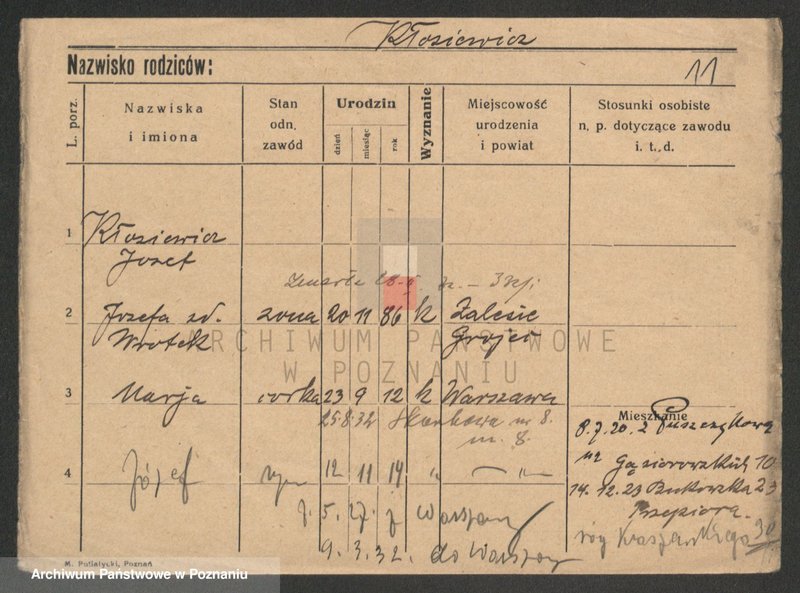 Kłosiewicz
Nazwisko rodziców:
11
L. porz.
Nazwiska
i imiona
Stan
odn.
zawód
Urodzin
dzień
miesiąc
rok
Wyznanie
Miejscowość
urodzenia
i powiat
Stosunki osobiste
n. p. dotyczące zawodu
i. t. d.
1
Kłosiewicz
Józef
zmarła
2
Józefa zd. żona 20 11 86 k Zalesie
Wrotek Grójec
ARCHIWUM PAŃSTWOWE
W POZNANIU
3
Marja córka 23 9 12 k Warszawa
25.8.32 Skarbowa nr 8.
m. 8.
Mieszkanie
8.7.20. z Puszczykowa
Gąsiorowskich 10
4
Józef syn 12 11 14 " — " —
14. 12. 23 Bukowska 23
5. 27. z Warszawy
róg Kraszewskiego 30
9. 3. 32. do Warszawy
M. Putiatycki, Poznań
Archiwum Państwowe w Poznaniu